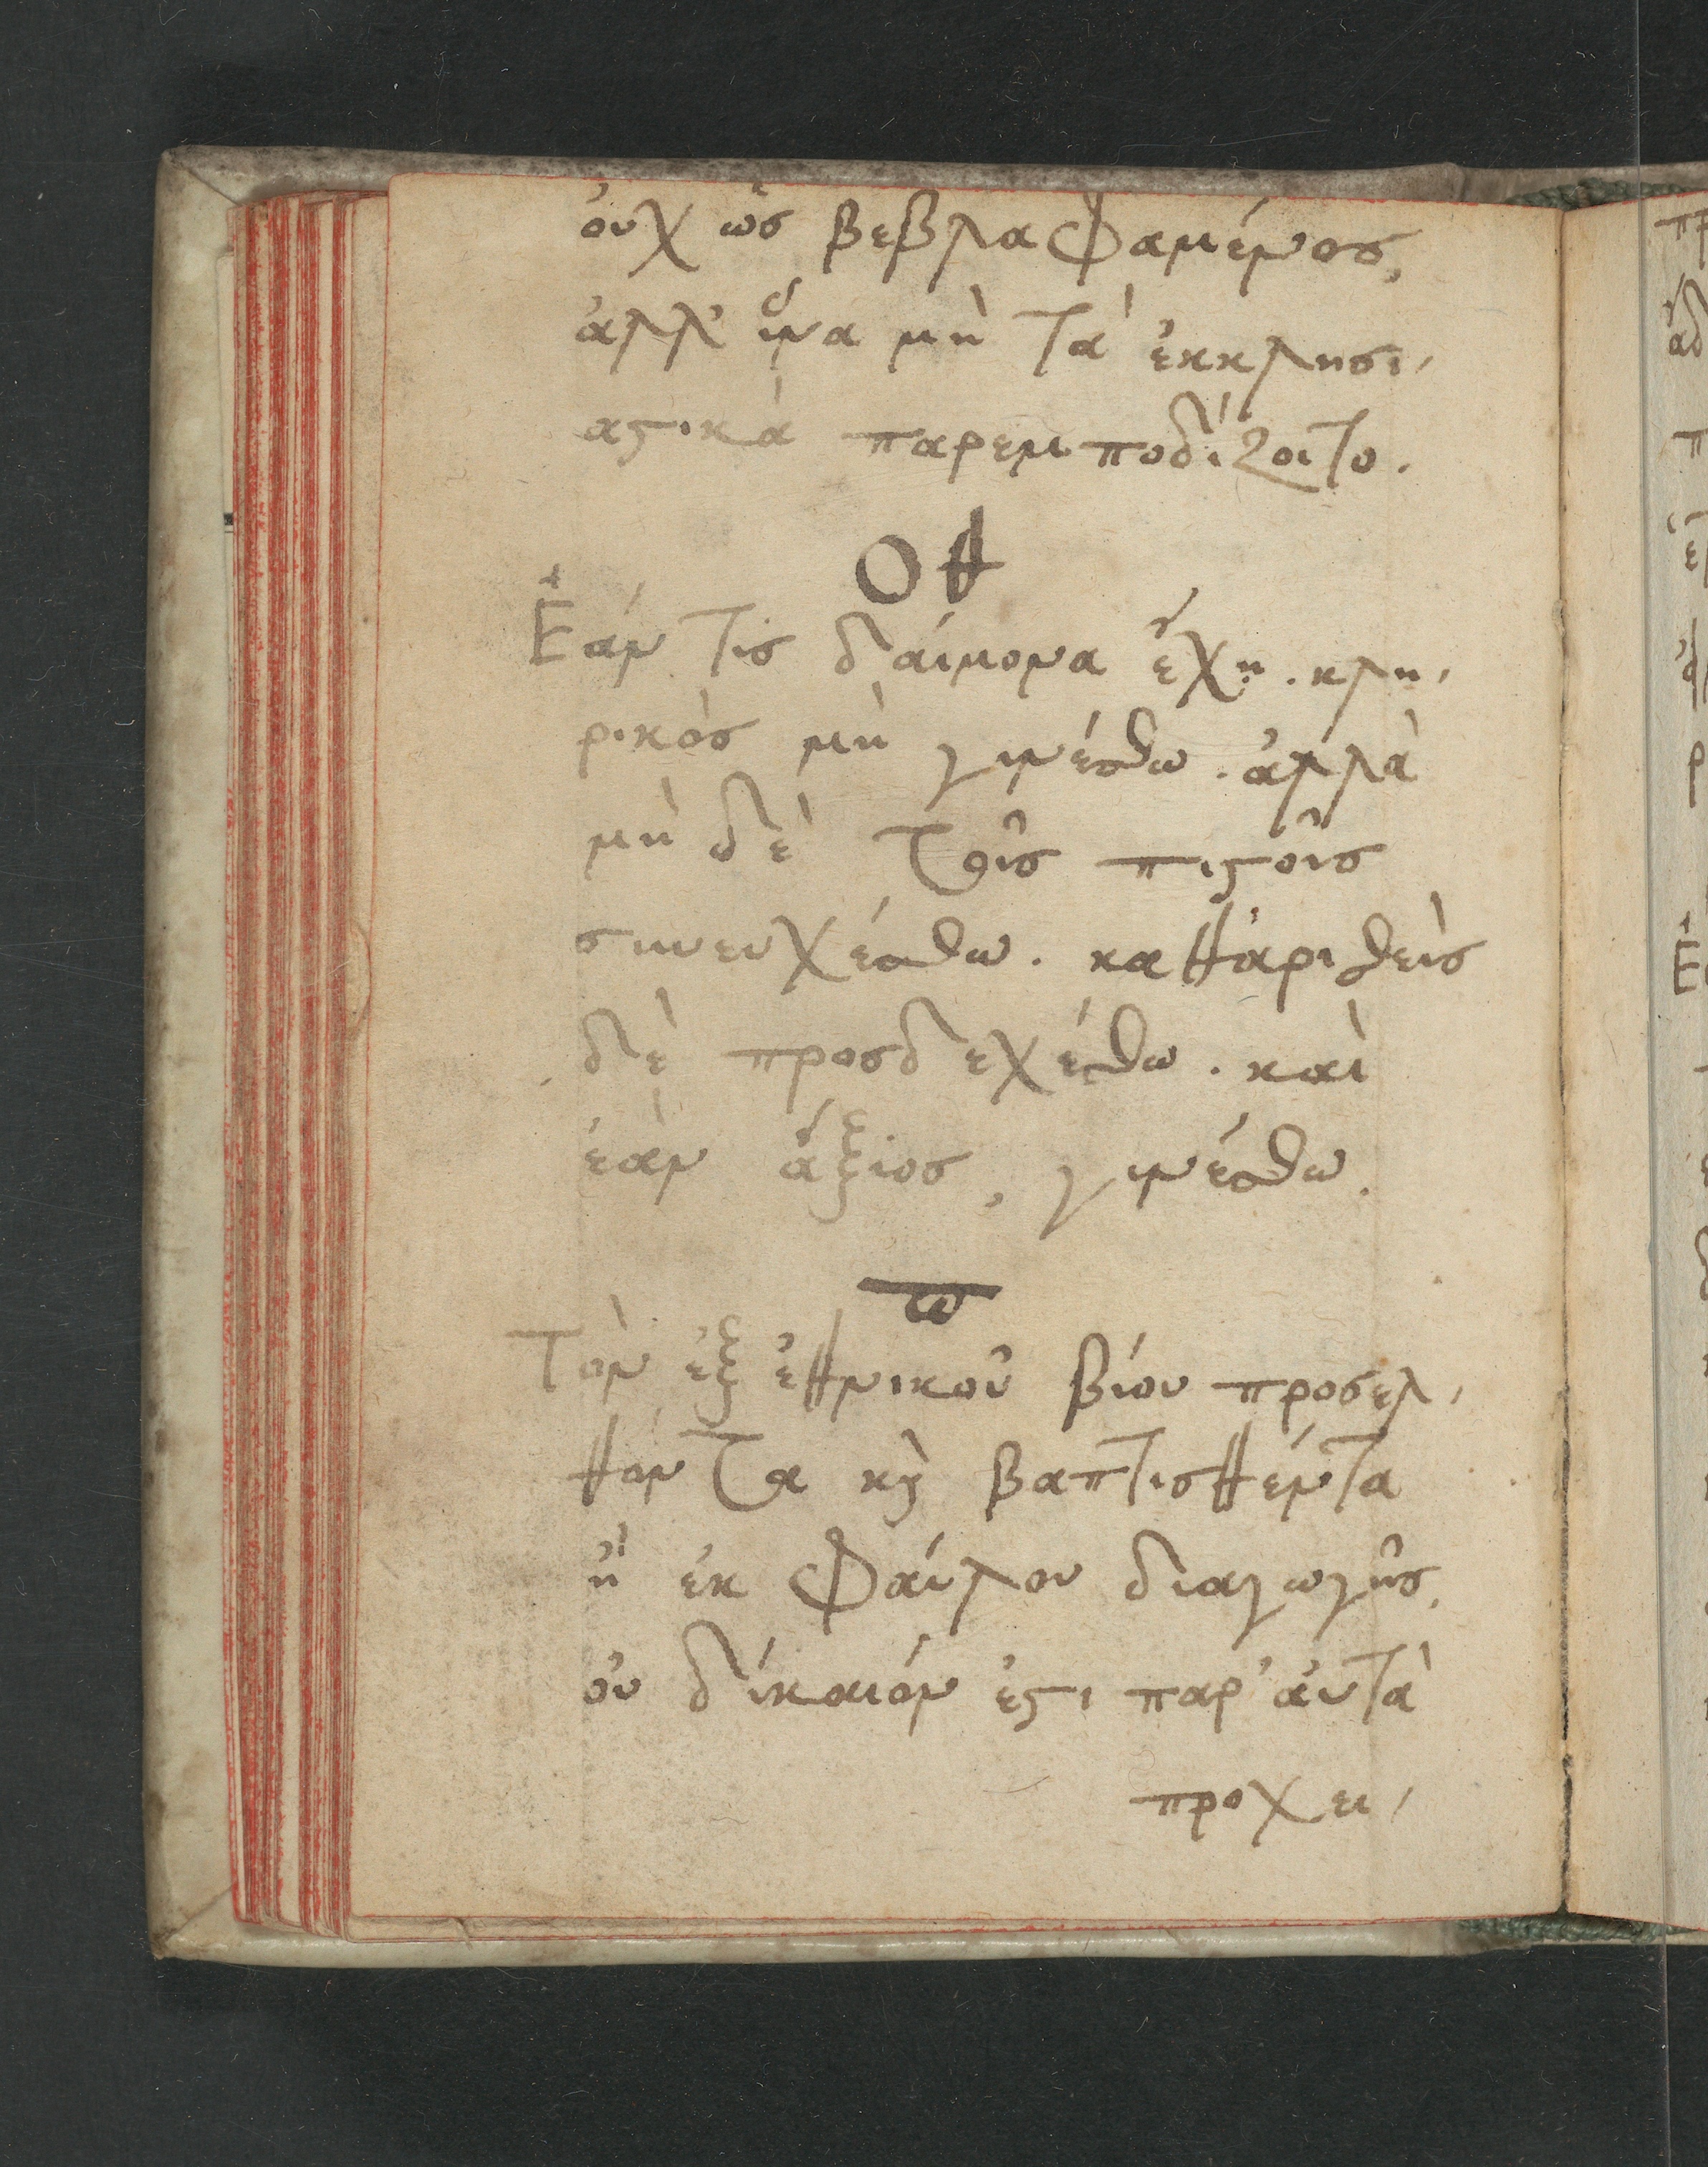 ὀυχ ὡς βεβλαφαμένος,
ἀλλ' ἵνα μὴ τὰ ἐκκλησι,
αϛικὰ παρεμποδίζοιτο.
ΟΘ
Ἐάν τις δάιμονα ἔχῃ. κλη,
ρικὸς μὴ γινέσθω. ἀλλὰ
μὴ δὲ τοῖς πιϛοῖς
συνευχέσθω. καθαρισθεὶς
δὲ προσδεχέσθω. καὶ
ἐὰν ἄξιος, γινέσθω.
π
Τὸν ἐξ ἐθνικοῦ βίου προσελ,
θόντα κϛὶ βαπτισθέντα
ἢ ἐκ φάυλου διαγωγῆς,
ὀυ δίκαιόν ἐϛι παρ' ἀυτὰ
προχει,